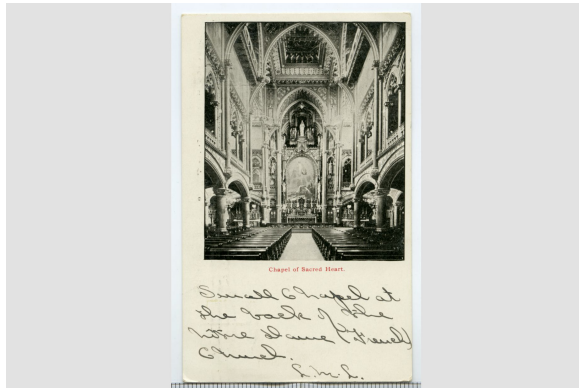 Chapel of Sacred Heart.
Small Chapel at
the back of the
Notre Dame (French)
Church.
L.M.L.